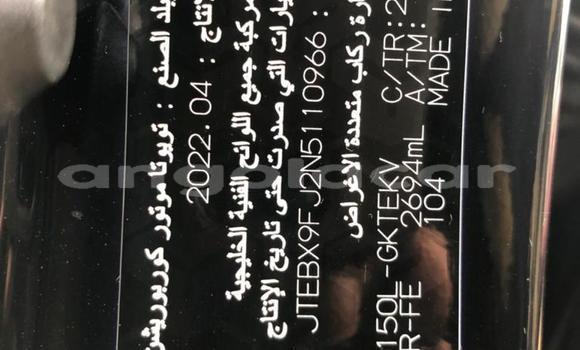 بلد الصنع : تويوتا موتور كوربوريشن
2022.04 :
جميع اللوائح الفنية الخليجية
التي صدرت حتى تاريخ الإنتاج
JTEBX9FJ2N5110966 :
ركاب متعددة الاغراض
150L-GKTEKV C/TR:2
R-FE 2694mL A/TM:
104 MADE
angolacar